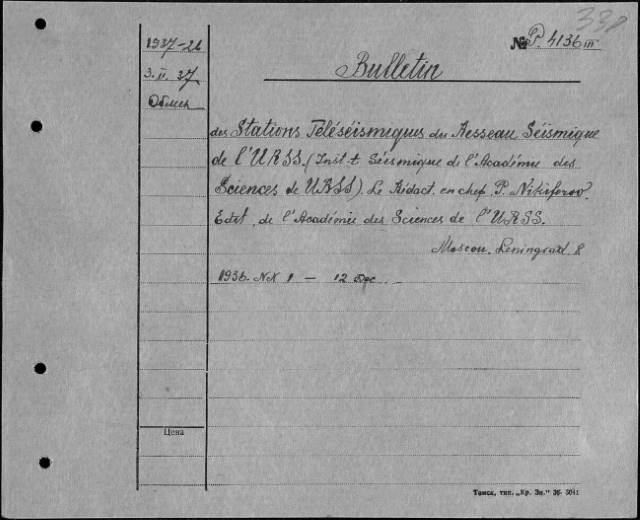 338
№ P. 4136 III
1937-24
3. II. 37
Обмен
Bulletin
des Stations Téléséismiques du Resseau Séismique
de l'URSS. (Inst-t Séismique de l'Académie des
Sciences de URSS). Le Rédact. en chef P. Nikiforov.
Edit. de l'Académie des Sciences de l'URSS.
Moscou. Leningrad. 8
1936. NN 1 — 12 Dec.
Цена
Томск, тип. „Кр. Зн." 36 5041